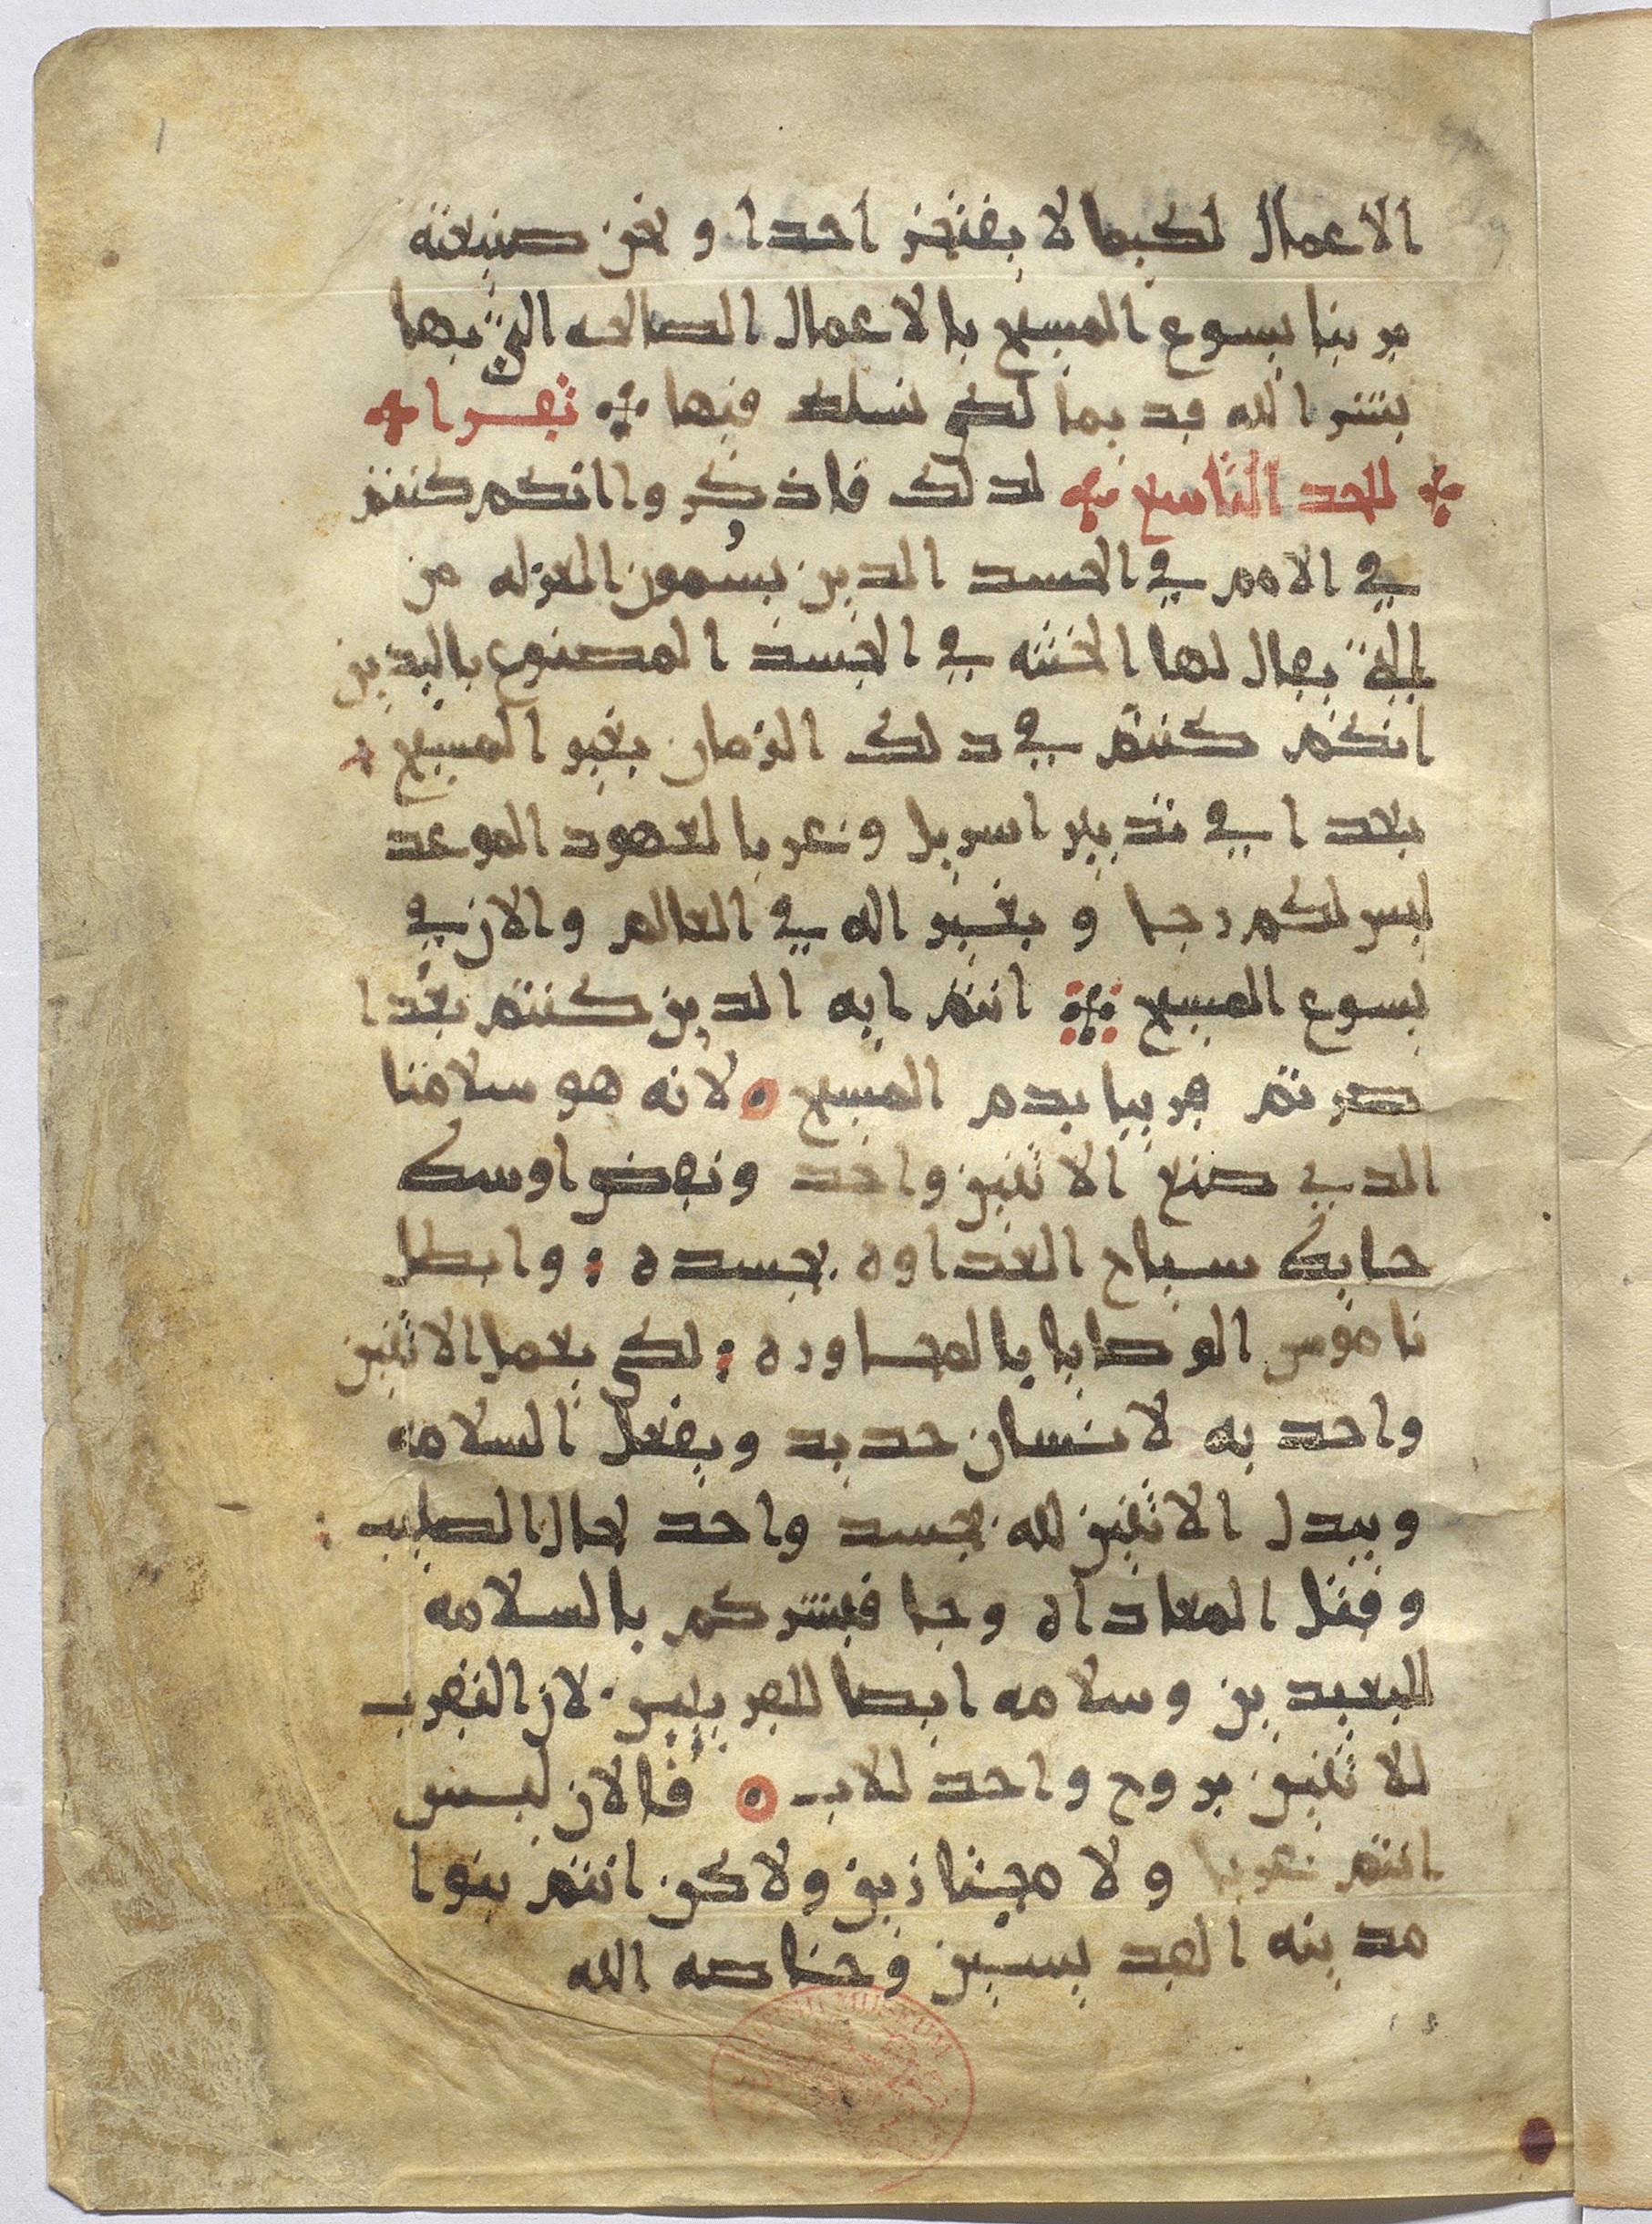 الاعمال لكيما لا يفتخر احدا و نحن صنيعته
بربنا يسوع المسيح بالاعمال الصالحه التي بها
بشر الله قديما لكي نسلك فيها تقرا
للحد التاسع لدلك فاذكروا انكم كنتم
في الامم في الجسد الدين يسمون العزله من
التي يقال لها الختنه في الجسد المصنوع باليدين
انكم كنتم في دلك الزمان بغير المسيح
بعدا في تدبير اسريل وغربا لعهود الموعد
ليس لكم رجا و بغير اله في العالم والان في
يسوع المسيح انتم ايه الدين كنتم بعدا
صرتم قريبا بدم المسيح لانه هو سلامنا
الدي صنع الاثنين واحد ونقض اوسط
حايط سياج العداوه بجسده وابطل
ناموس الوصايا بالمحاوره لكي يعمل الاثنين
واحد به لانسان جديد ويفعل السلامه
ويبدل الاثنين لله بجسد واحد لحال الصليب
وقتل المعاداه وجا فبشركم بالسلامه
للبعيدين وسلامه ايضا للقريبين لان التقرب
للاثنين بروح واحد للاب فالان ليس
انتم غربا ولا مجتازين ولاكن انتم بنوا
مدينه القديسين وخاصه الله